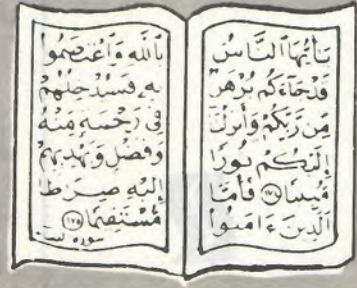 يَٰأَيُّهَا ٱلنَّاسُ
قَدْ جَآءَكُم بُرْهَٰنٌ
مِّن رَّبِّكُمْ وَأَنزَلْنَا
إِلَيْكُمْ نُورًا
مُّبِينًا ١٧٤ فَأَمَّا
ٱلَّذِينَ ءَامَنُوا
بِٱللَّهِ وَٱعْتَصَمُوا
بِهِ فَسَيُدْخِلُهُمْ
فِى رَحْمَةٍ مِنْهُ
وَفَضْلٍ وَيَهْدِيهِمْ
إِلَيْهِ صِرَٰطًا
مُّسْتَقِيمًا ١٧٥
سورة النساء